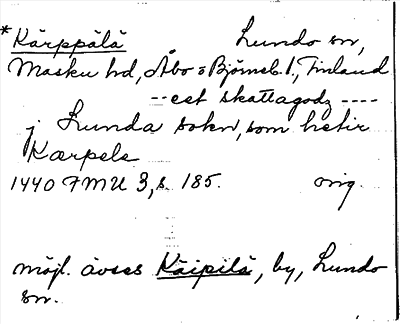 *Kärppälä Lundo sn,
Masku hd, Åbo o Björneb. l., Finland
-- eet skattagodz ----
j Lunda sokn, som hetir
Karpela
1440 FMU 3, s. 185. orig.
möjl. avses Käipilä, by, Lundo
sn.